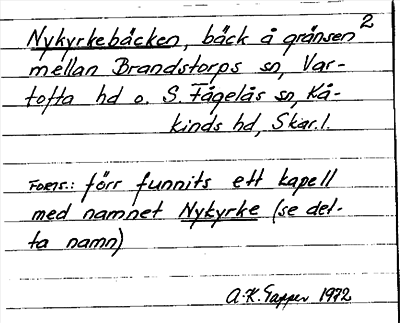 2
Nykyrkebäcken, bäck å gränsen
mellan Brandstorps sn, Var-
tofta hd o. S. Fågelås sn, Kå-
kinds hd, Skar.l.
Forts.: förr funnits ett kapell
med namnet Nykyrke (se det-
ta namn)
A.K. Tapper 1972